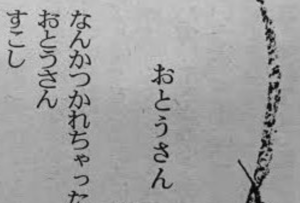 おとうさん
なんかつかれちゃった
おとうさん
すこし